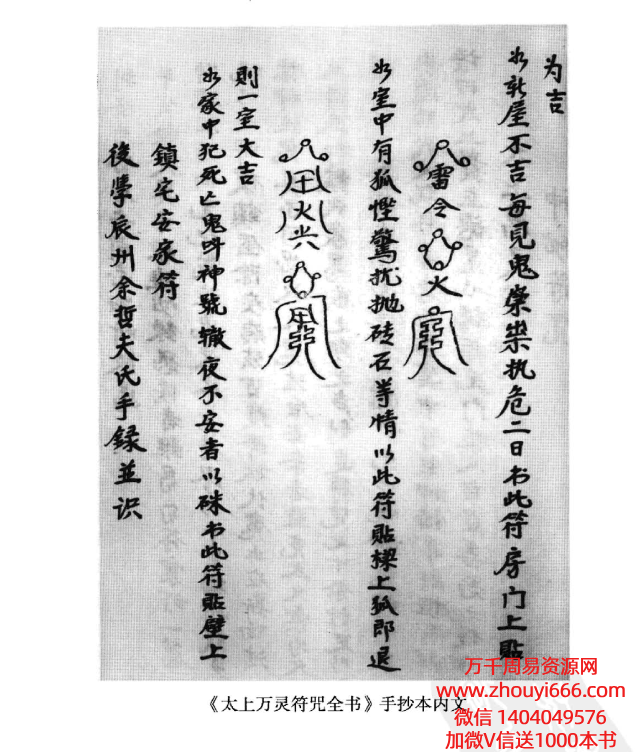 为吉
如新屋不吉每見鬼祟执危二日书此符房门上貼
雷令火
如室中有狐怪驚扰抛砖石等情以此符貼樑上狐即退
則一定大吉
如家中犯死亡鬼呌神號辙夜不安者以硃书此符貼壁上
鎮宅安家符
後學辰州余哲夫氏手録並识
《太上万灵符咒全书》手抄本内文
万千周易资源网
www.zhouyi666.com
微信 1404049576
加微V信送1000本书